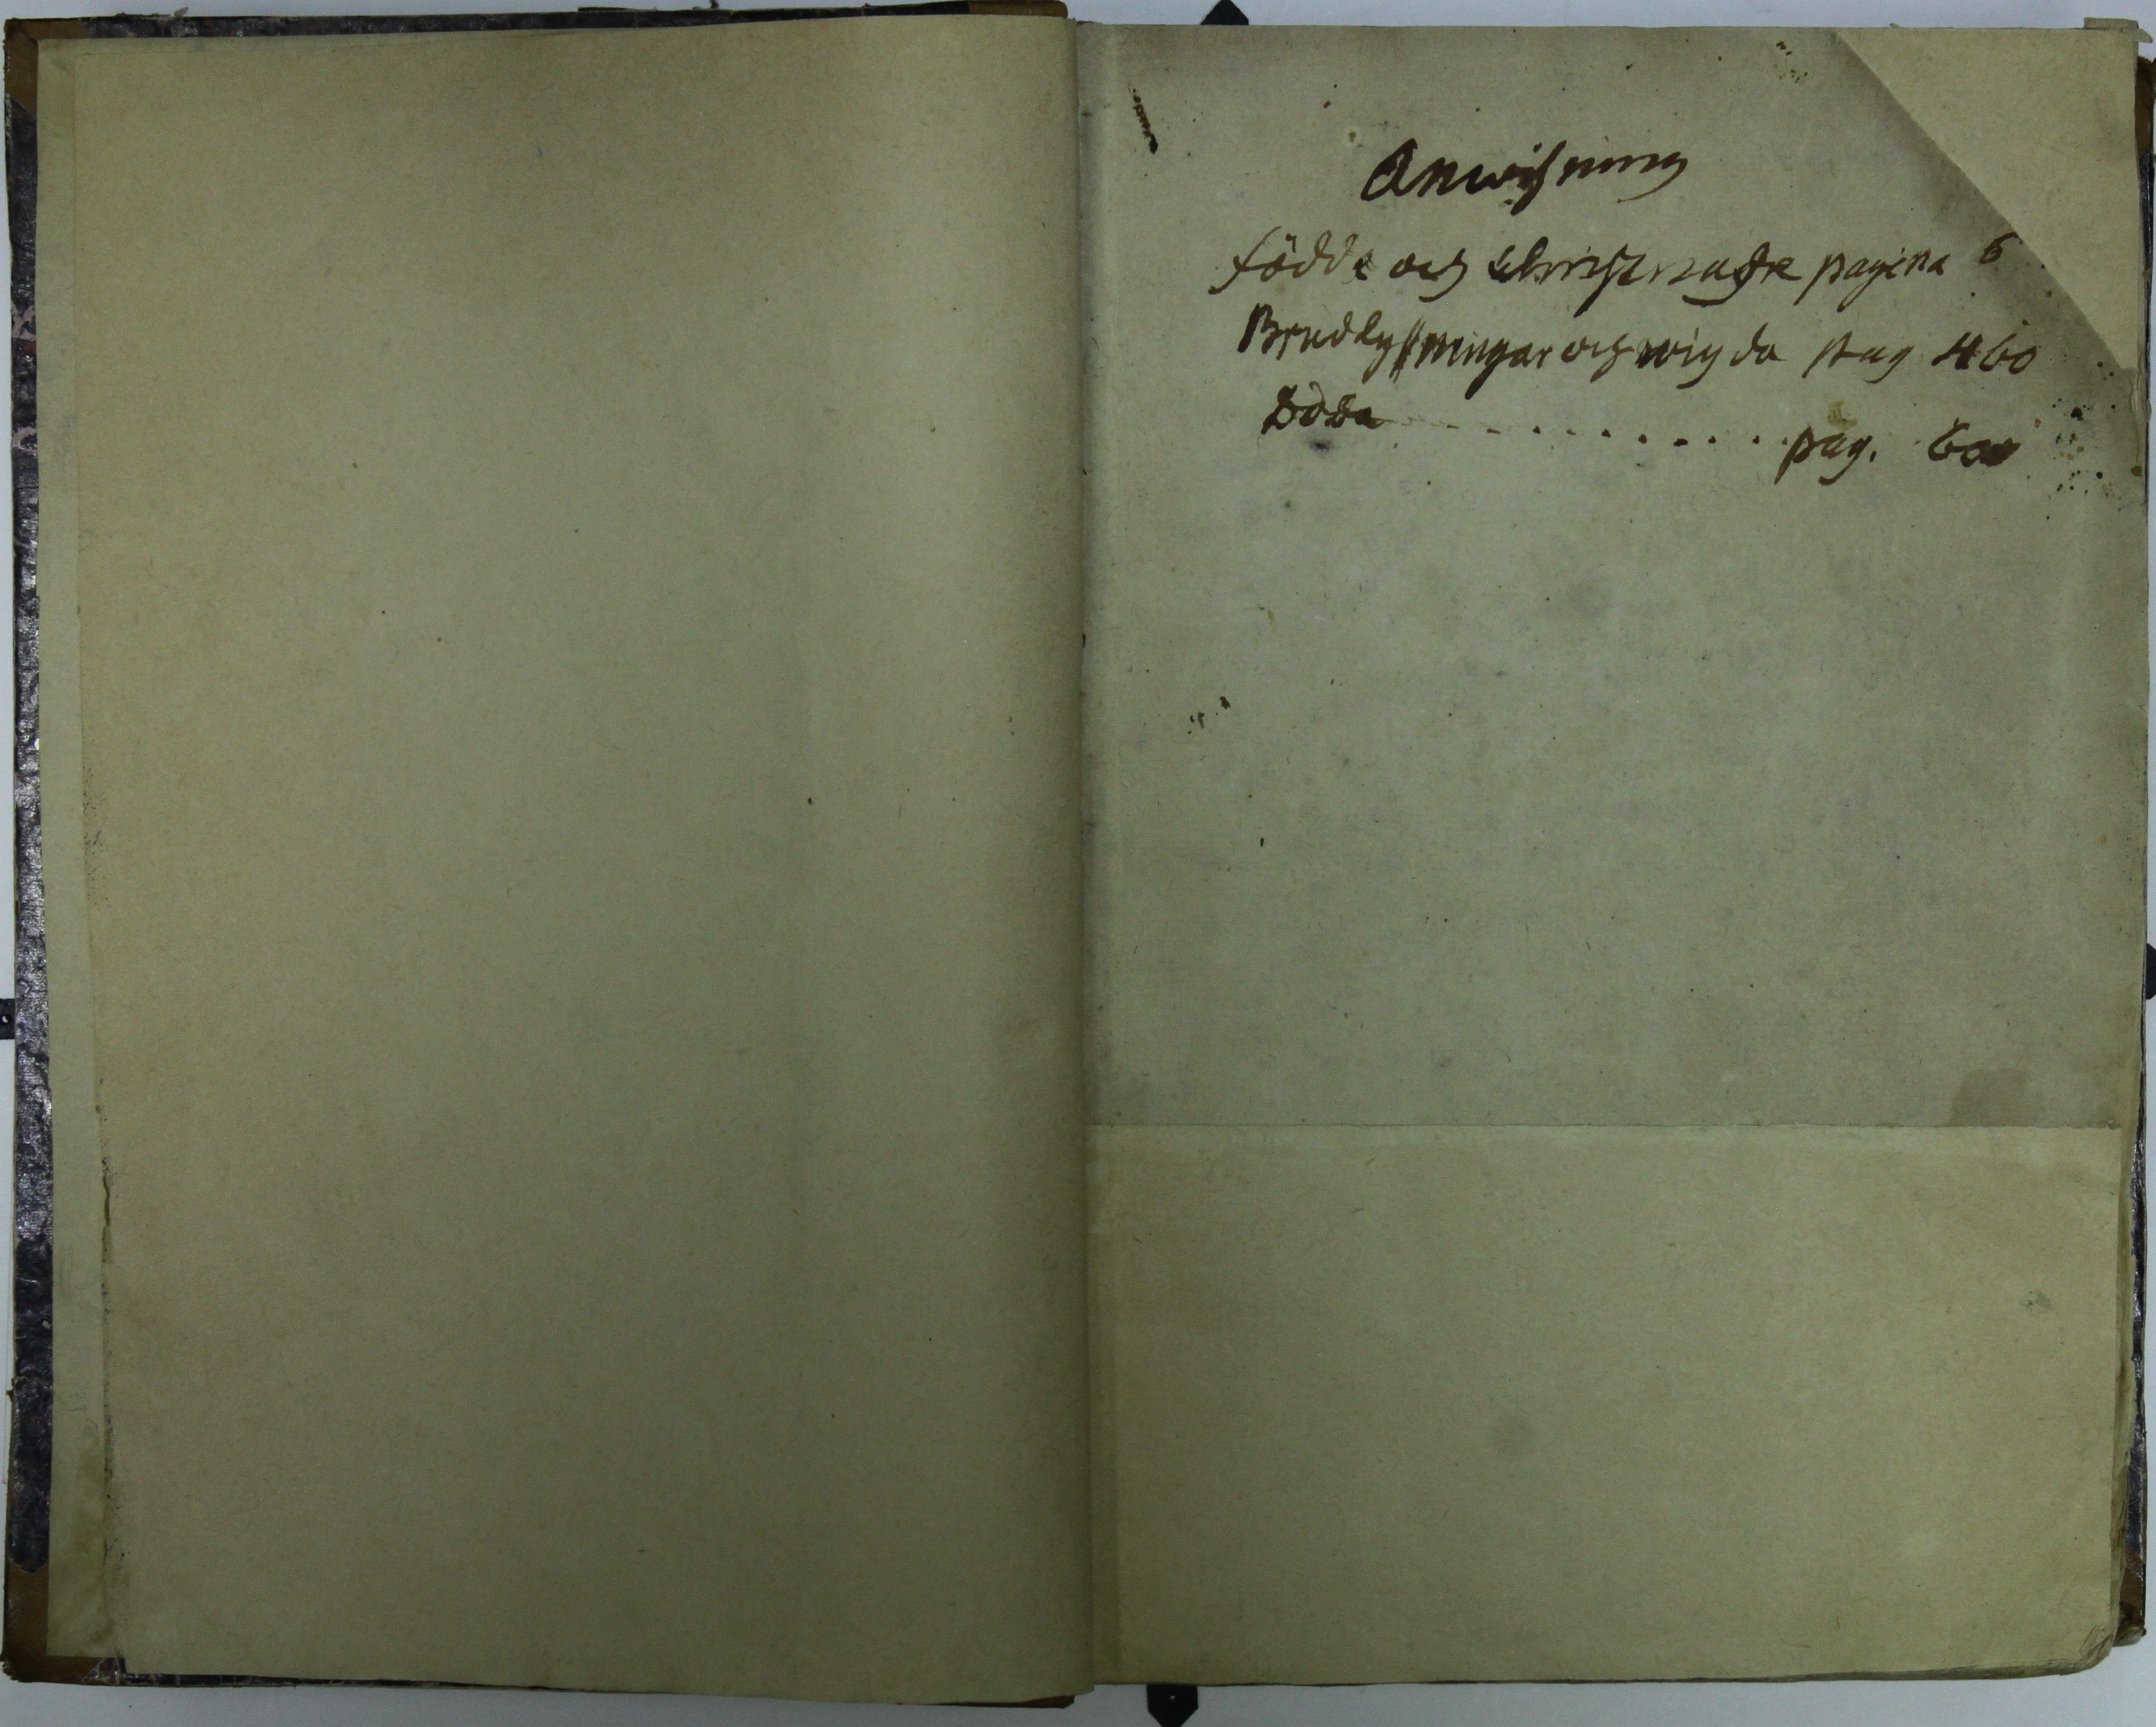 Anwisning
födde och Christnade pagina 6
Brudlysningar och wigda pag 460
Döda - - - - - - - - - - - - pag. 600